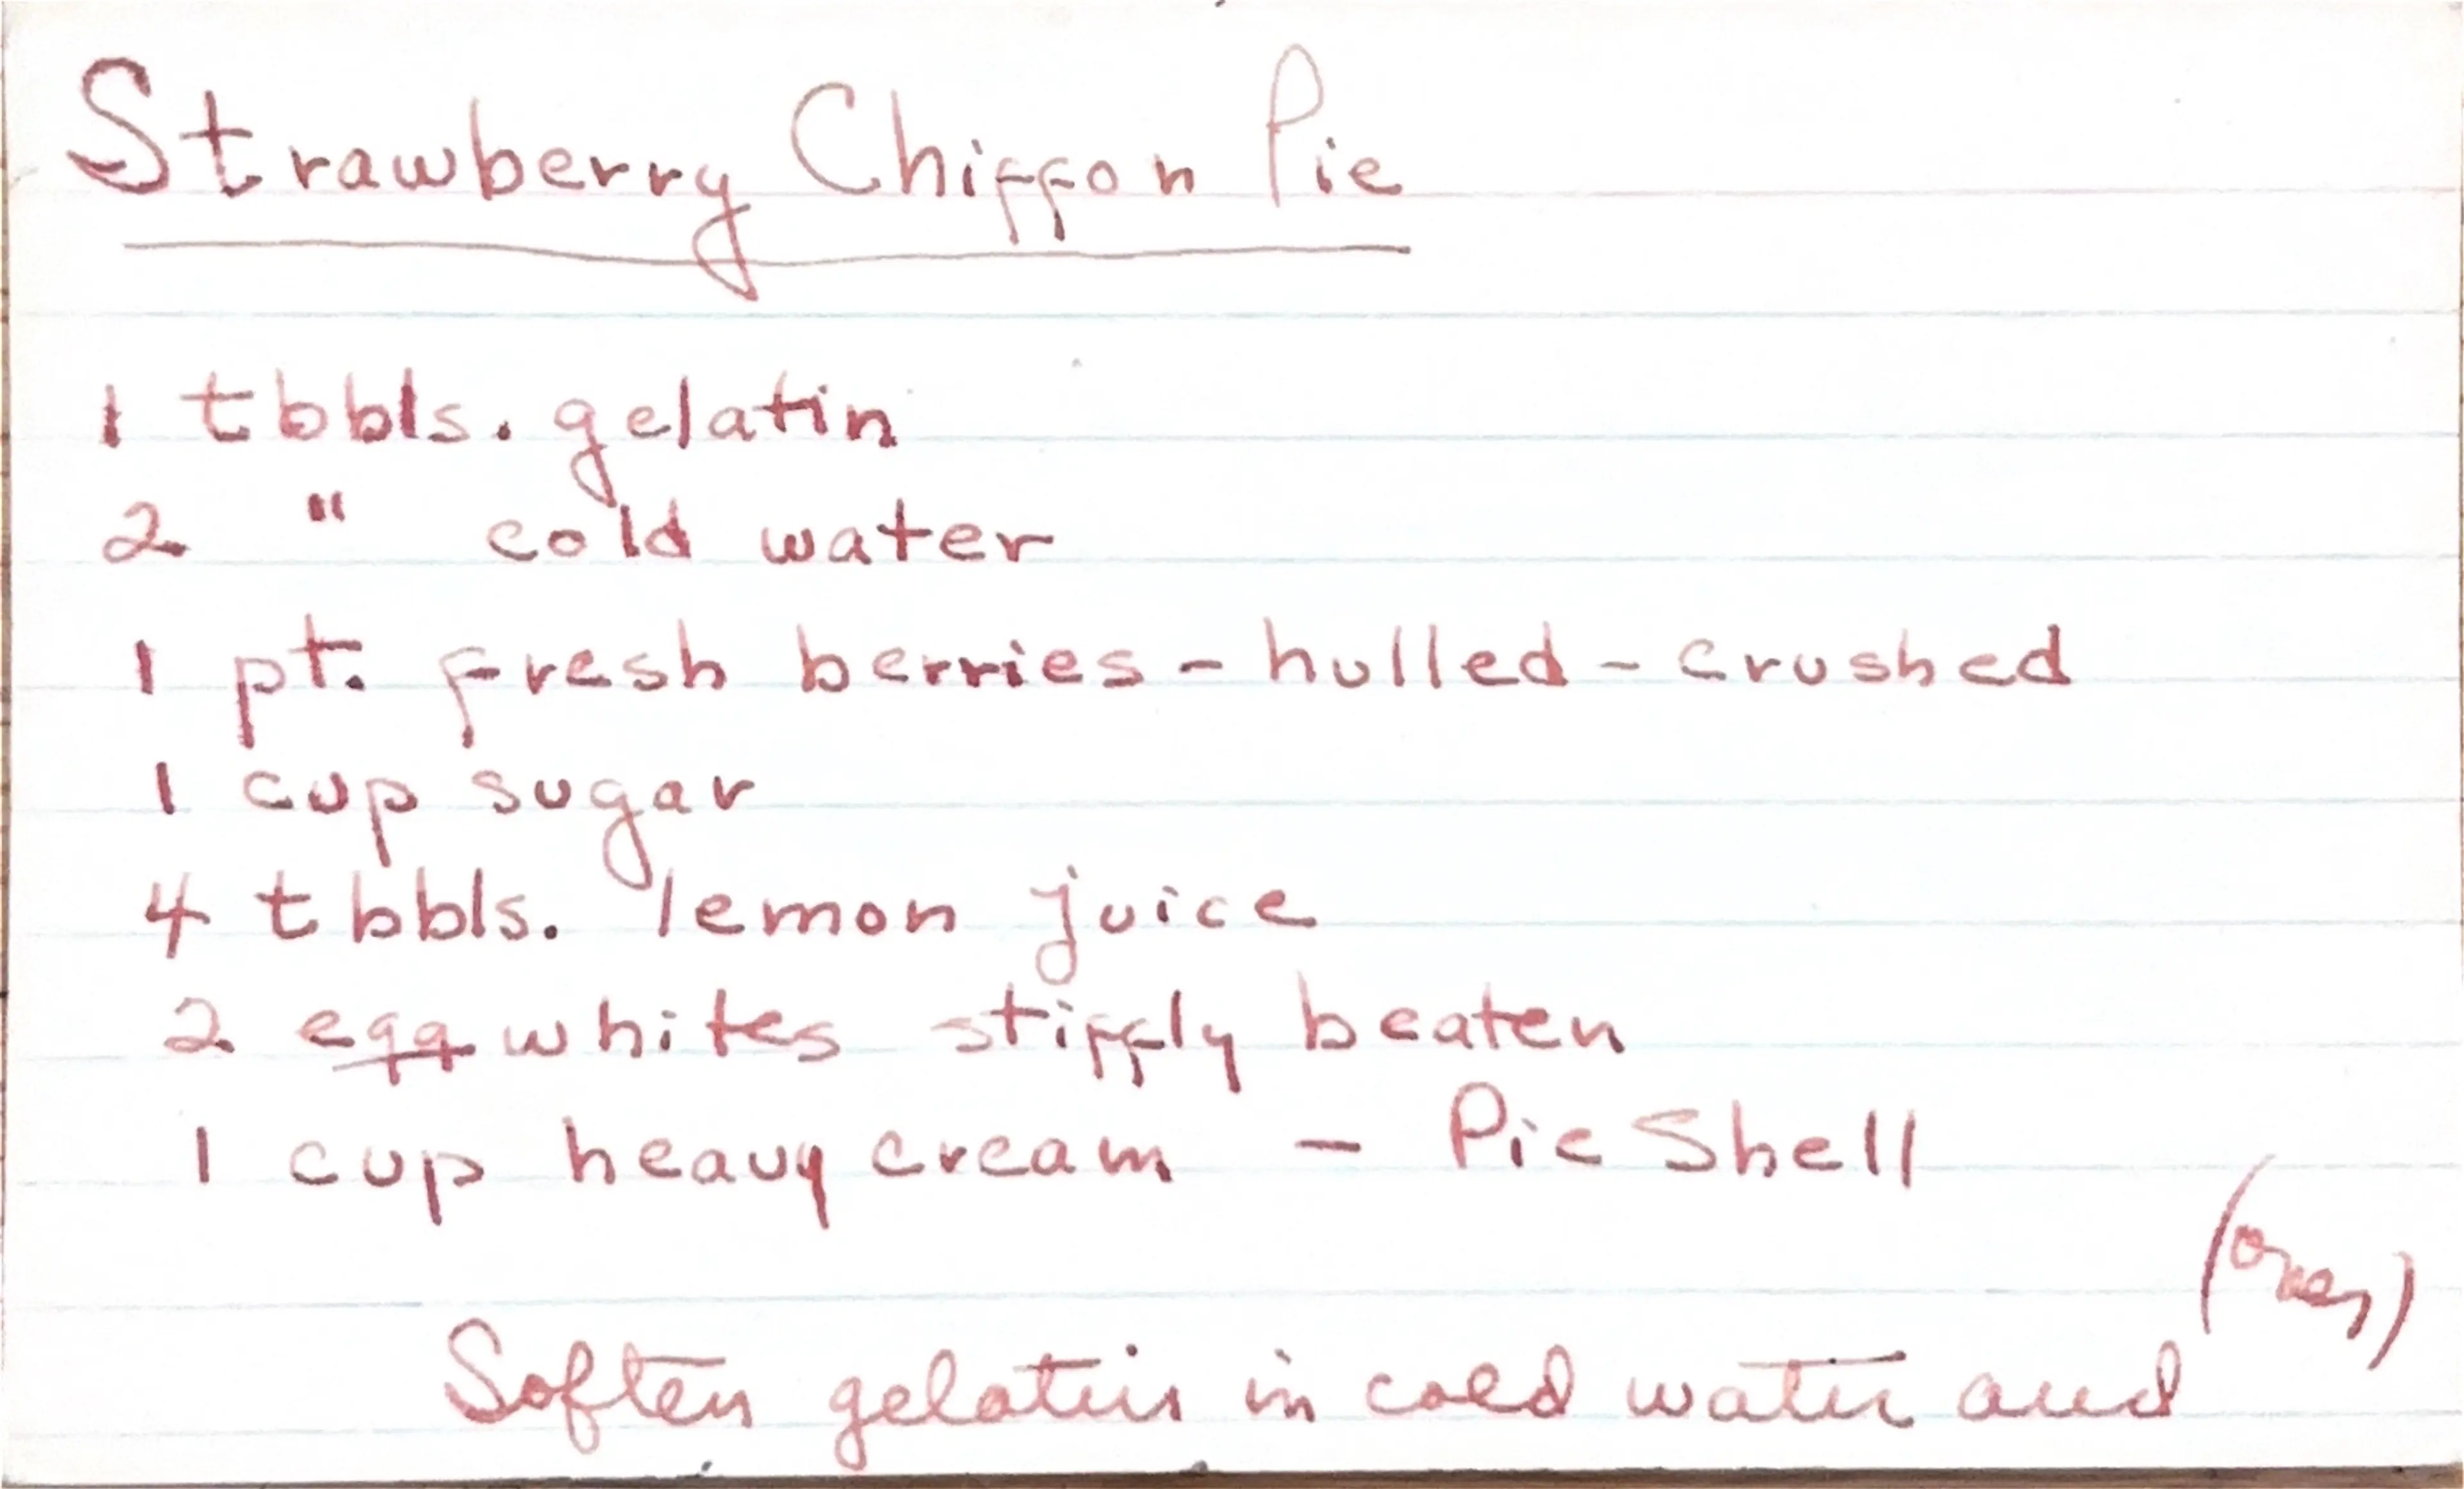 Strawberry Chiffon Pie
1 tbbls. gelatin
2 " cold water
1 pt. fresh berries - hulled - crushed
1 cup sugar
4 tbbls. lemon juice
2 egg whites stiffly beaten
1 cup heavy cream - Pie Shell
(over)
Soften gelatin in cold water and